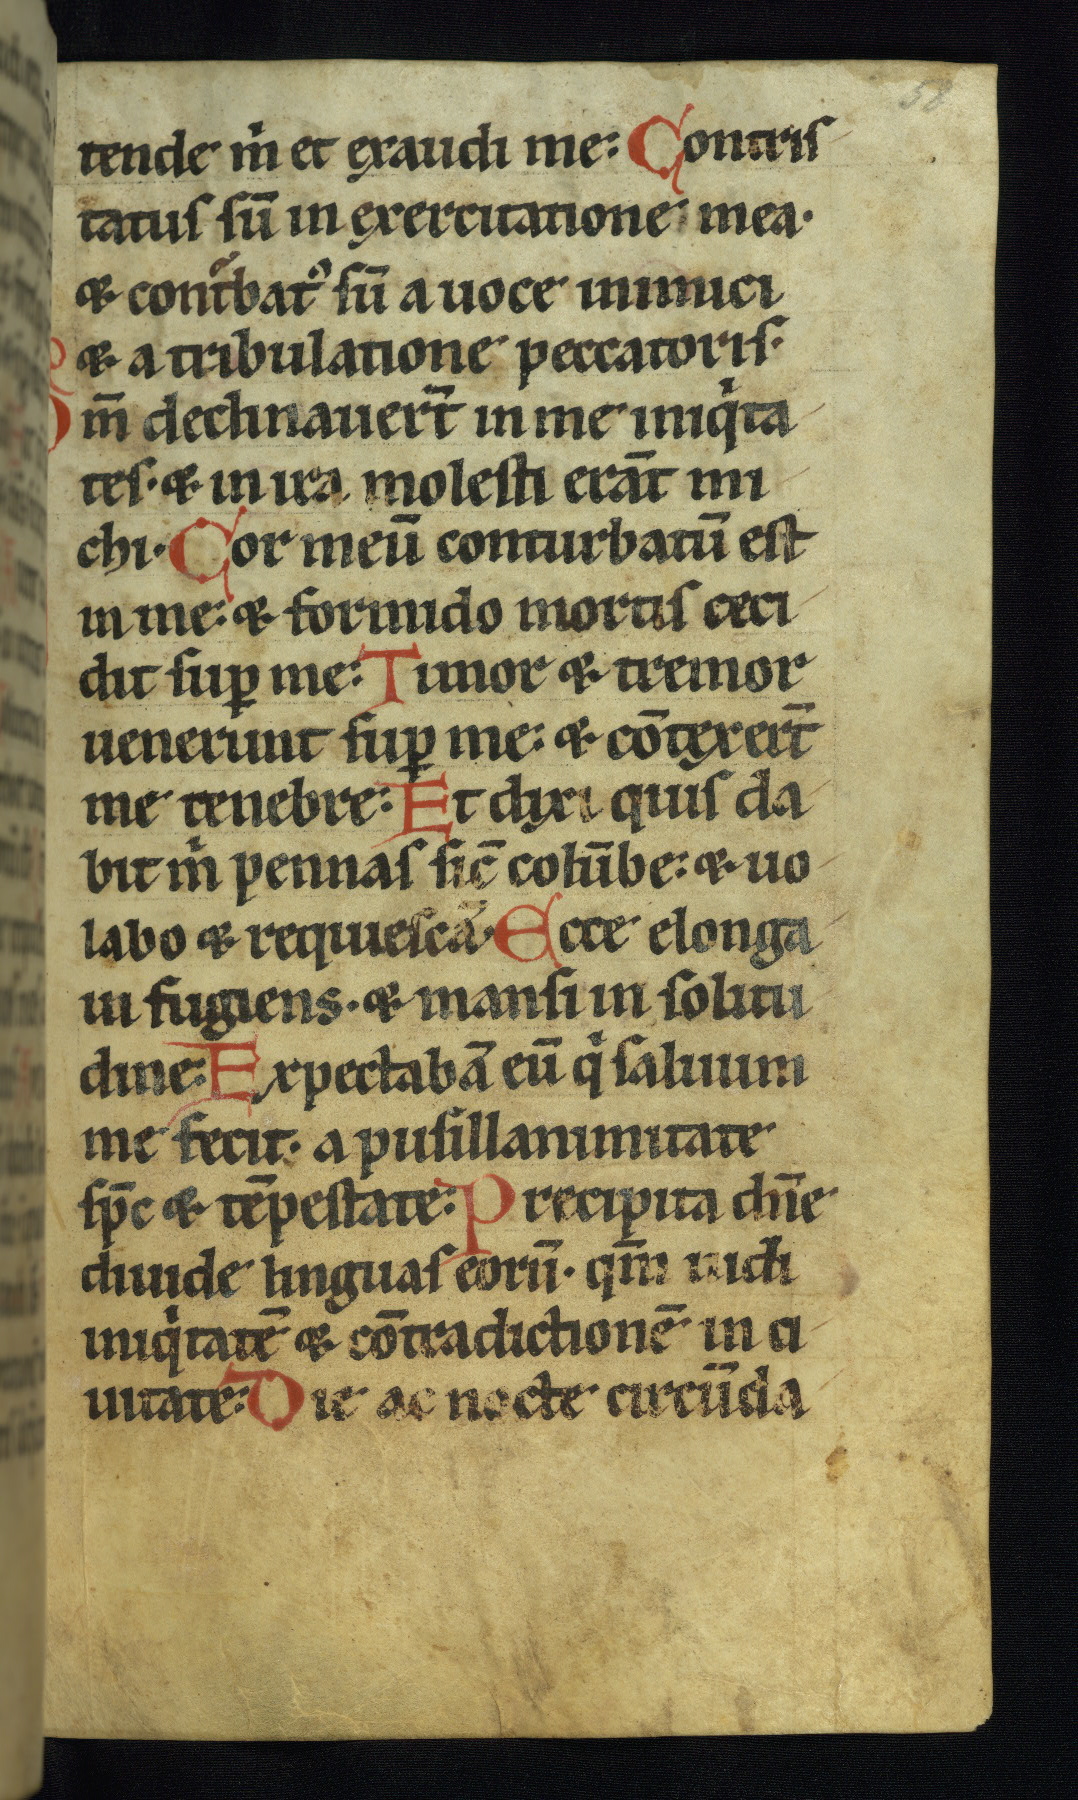 58
tende m̍ et exaudi me: Contris
tatus sū in exercitatione mea.
& cont̃bat᾽ sū a uoce inimici
& a tribulatione peccatoris.
Qm̄ declinauert̄ in me iniq̍ta
tes. & in ira molesti erāt mi
chi. Cor meū conturbatū est
in me: & formido mortis ceci
dit sup̲ me: Timor & tremor
uenerunt sup̲ me: & cōtexert̄
me tenebre: Et dixi quis da
bit m̍ pennas sic̄ colūbe: & uo
labo & requiescā. Ecce elonga
ui fugiens. & mansi in solitu
dine: Expectabā eū q̍ saluum
me fecit. a pusillanimitate
sp̄c & tēpestate: Precipita dn̄e
diuide linguas eorū. qm̄ uidi
iniq̍tatē & cōtradictionē in ci
uitate: Die ac nocte circūda